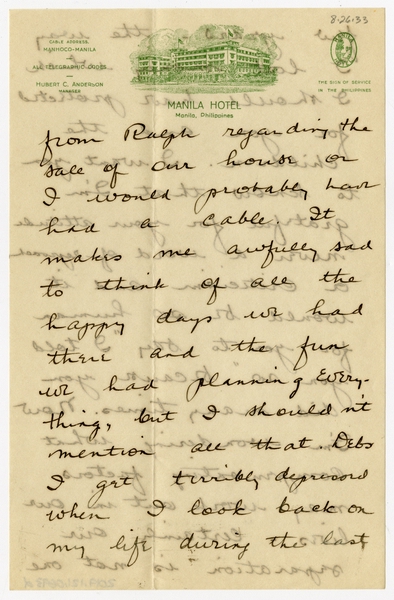 8·26·33
CABLE ADDRESS,
MANHOCO-MANILA
ALL TELEGRAPHIC CODES
HUBERT C. ANDERSON
MANAGER
THE SIGN OF SERVICE
IN THE PHILIPPINES
MANILA HOTEL
Manila, Philippines
from Ralph regarding the
sale of our house or
I would probably have
had a cable. It
makes me awfully sad
to think of all the
happy days we had
there and the fun
we had planning every-
thing, but I shouldn't
mention all that. Debs
I get terribly depressed
when I look back on
my life during the last